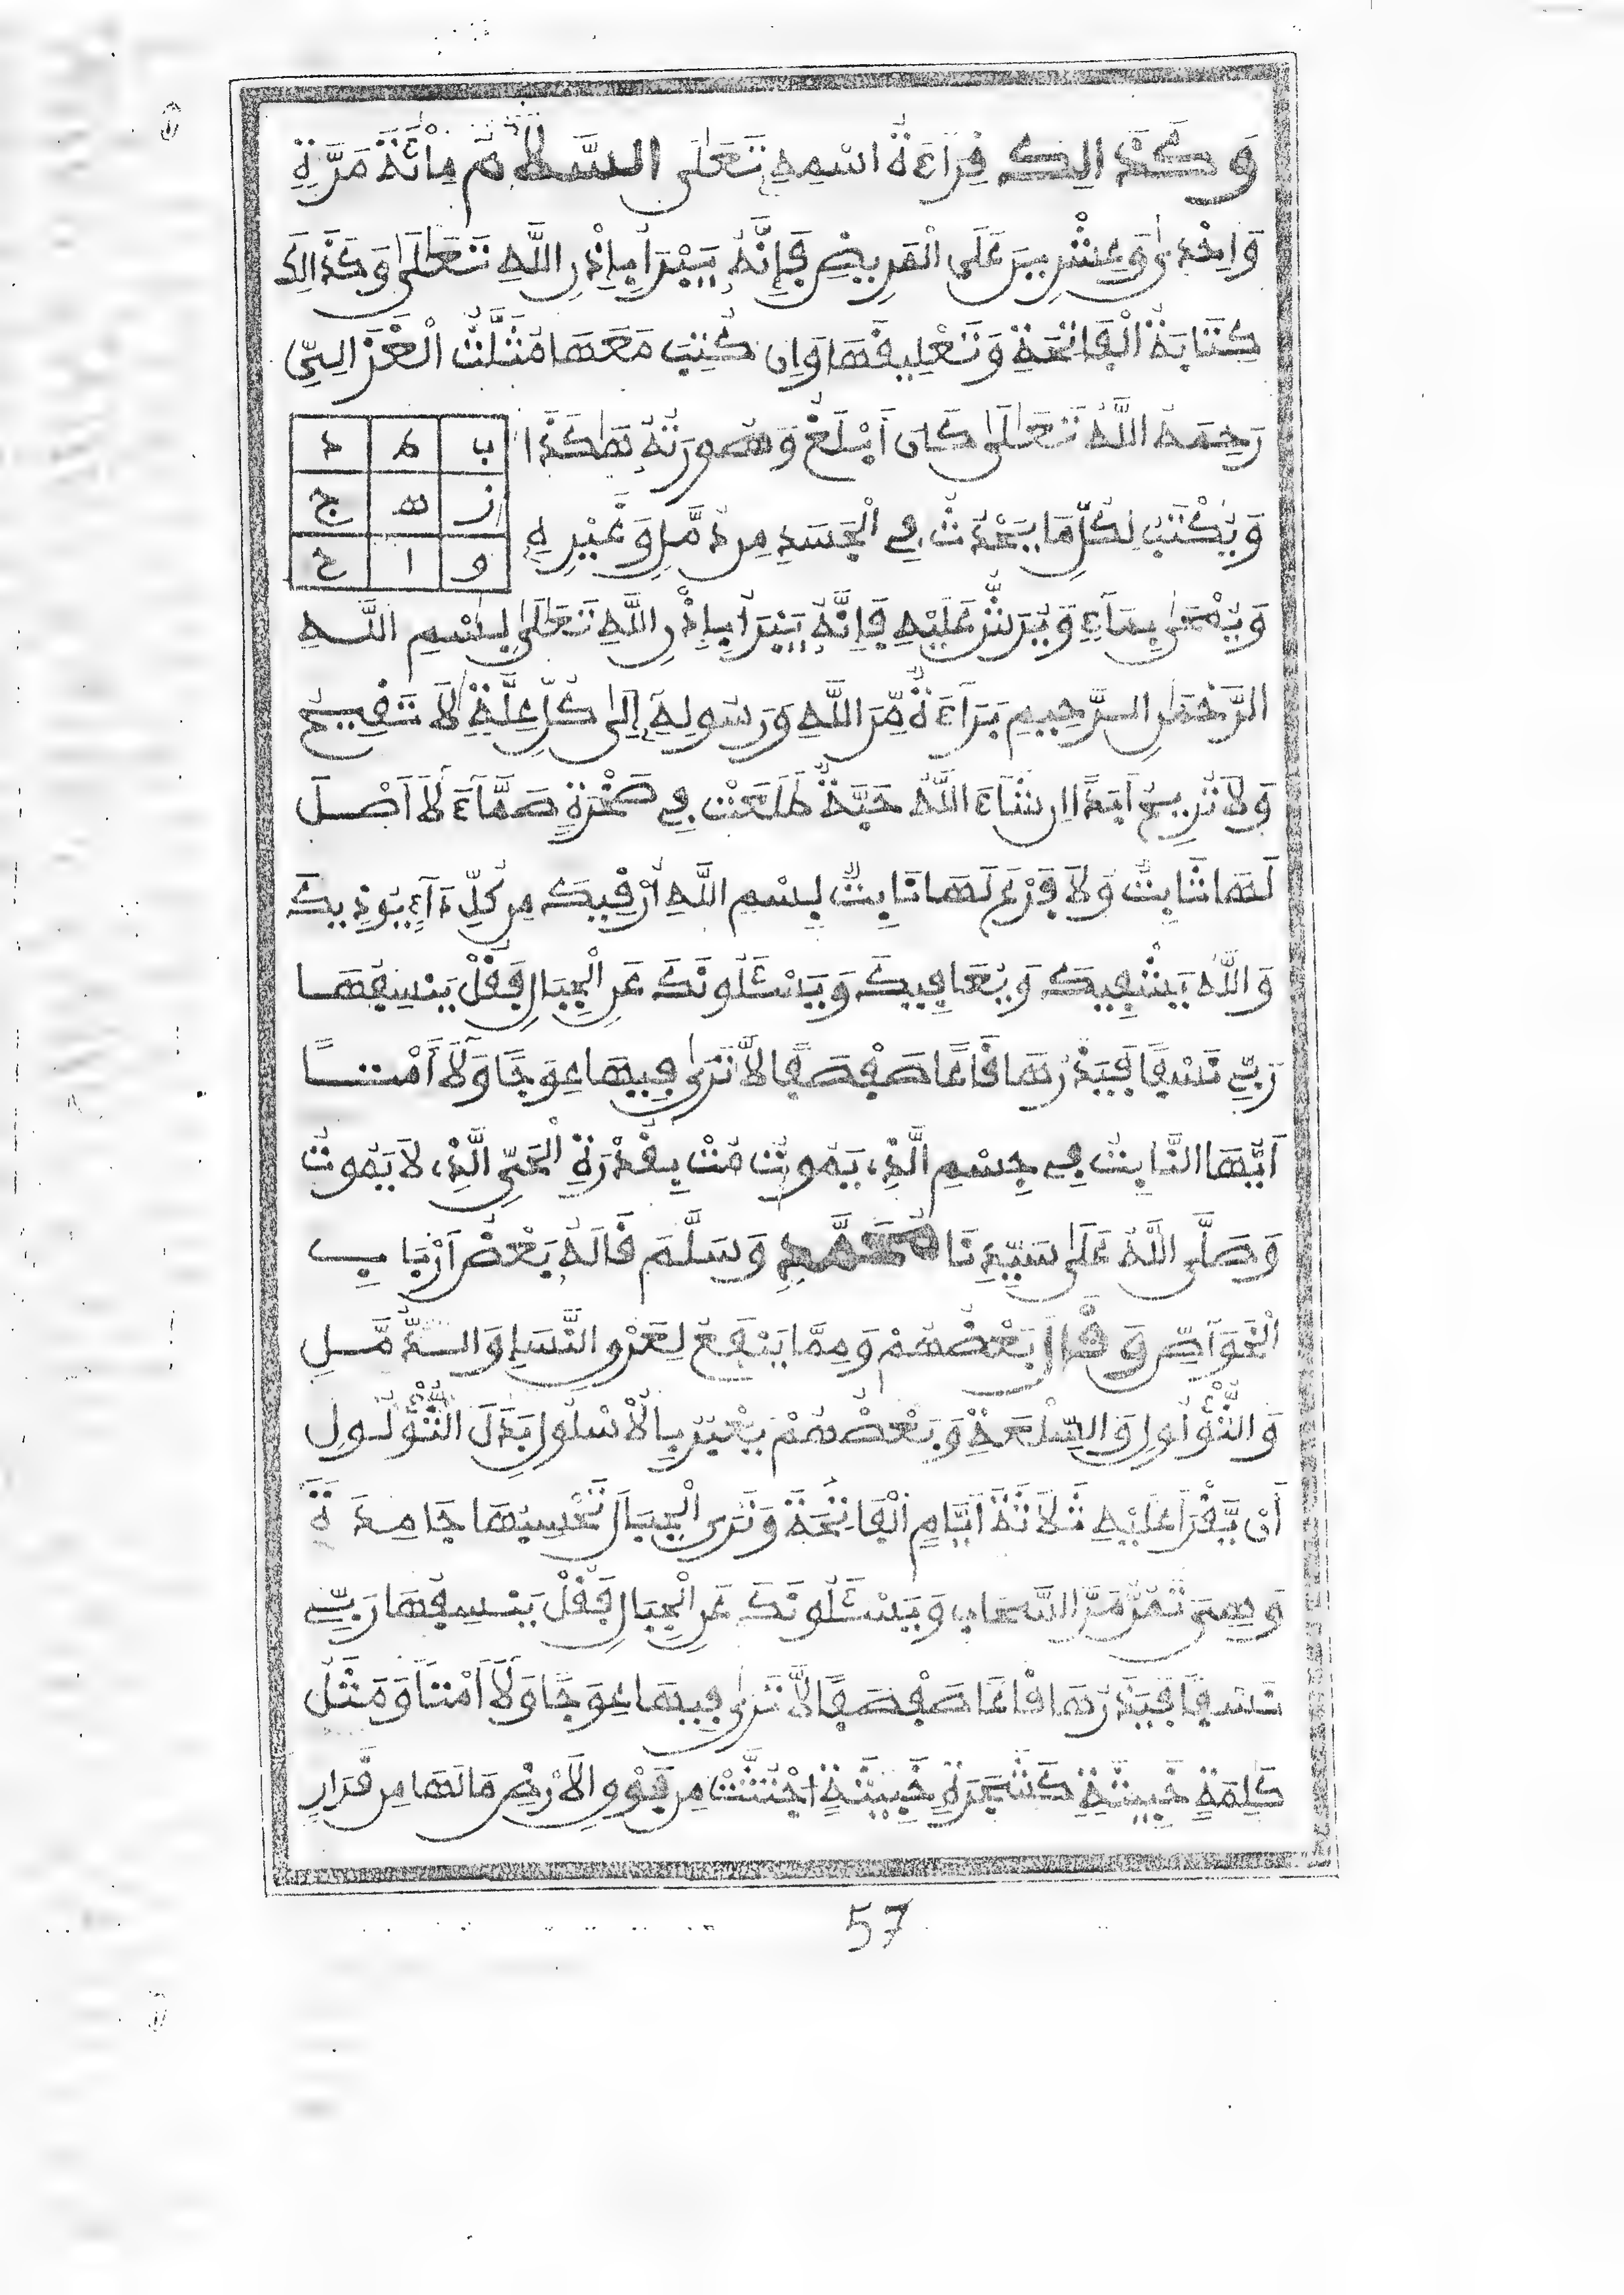 وَكَذَالِكَ قِرَاءَةُ اسْمِهِ تَعَلَى السَّلَامُ مِائَةَ مَرَّةٍ
وَإِحْدَىٰ وَعِشْرِينَ عَلَى الْمَرِيضِ فَإِنَّهُ يَبْرَأُ بِإِذْنِ اللَّهِ تَعَلَىٰ وَكَذَالِكَ
كِتَابَةُ الْفَاتِحَةِ وَتَعْلِيقُهَا وَإِن كُتِبَ مَعَهَا مُثَلَّثُ الْغَزَالِيِّ
رَحِمَهُ اللَّهُ تَعَلَىٰ كَانَ أَبْلَغُ وَصُورَتُهُ هَٰكَذَا
ب ط د
ز ه ج
و ا ح
وَيُكْتَبُ لِكُلِّ مَا يَحْدُثُ فِي الْجَسَدِ مِن دُمَّلٍ وَغَيْرِهِ
وَيُمْحَىٰ بِمَاءٍ وَيُرَشُّ عَلَيْهِ فَإِنَّهُ يَبْرَأُ بِإِذْنِ اللَّهِ تَعَلَىٰ بِسْمِ اللَّهِ
الرَّحْمَٰنِ الرَّحِيمِ بَرَاءَةٌ مِّنَ اللَّهِ وَرَسُولِهِ إِلَىٰ كُلِّ عِلَّةٍ لَا تَقِيحُ
وَلَا تَرِيحُ أَبَدًا إِن شَاءَ اللَّهُ حَبَّةٌ طَلَعَتْ فِي صَخْرَةٍ صَمَّاءَ لَا أَصْلَ
لَهَا ثَابِتٌ وَلَا فَرْعَ لَهَا نَابِتٌ بِسْمِ اللَّهِ أَرْقِيكَ مِن كُلِّ دَاءٍ يُوذِيكَ
وَاللَّهُ يَشْفِيكَ وَيُعَافِيكَ وَيَسْـَٔلُونَكَ عَنِ الْجِبَالِ فَقُلْ يَنسِفُهَا
رَبِّي نَسْفًا فَيَذَرُهَا قَاعًا صَفْصَفًا لَّا تَرَىٰ فِيهَا عِوَجًا وَلَا أَمْتًا
أَيُّهَا النَّابِتُ فِي جِسْمِ الَّذِي يَمُوتُ مُتْ بِقُدْرَةِ الْحَيِّ الَّذِي لَا يَمُوتُ
وَصَلَّى اللَّهُ عَلَىٰ سَيِّدِنَا مُحَمَّدٍ وَسَلَّمَ قَالَهُ بَعْضُ أَرْبَابِ
الْخَوَاصِّ وَقَالَ بَعْضُهُمْ وَمِمَّا يَنفَعُ لِعِرْقِ النَّسَا وَالدُّمَّلِ
وَالثُّؤْلُولِ وَالسِّلْعَةِ وَبَعْضُهُمْ يُعَبِّرُ بِالْأُسْلُولِ بَدَلَ الثُّؤْلُولِ
أَن يُّقْرَأَ عَلَيْهِ ثَلَاثَةَ أَيَّامٍ الْفَاتِحَةَ وَتَرَى الْجِبَالَ تَحْسِبُهَا جَامِدَةً
وَهِيَ تَمُرُّ مَرَّ السَّحَابِ وَيَسْـَٔلُونَكَ عَنِ الْجِبَالِ فَقُلْ يَنسِفُهَا رَبِّي
نَسْفًا فَيَذَرُهَا قَاعًا صَفْصَفًا لَّا تَرَىٰ فِيهَا عِوَجًا وَلَا أَمْتًا وَمَثَلُ
كَلِمَةٍ خَبِيثَةٍ كَشَجَرَةٍ خَبِيثَةٍ اجْتُثَّتْ مِن فَوْقِ الْأَرْضِ مَا لَهَا مِن قَرَارٍ
57